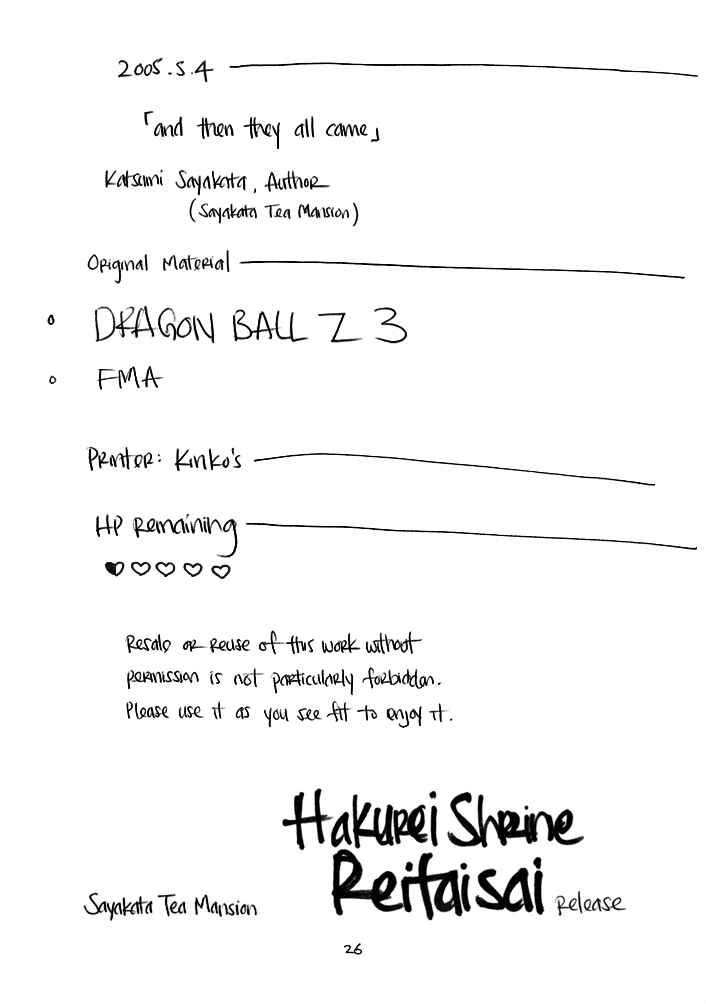 2005.5.4
「and then they all came」
Katsumi Sayakata, Author
(Sayakata Tea Mansion)
Original Material
DRAGON BALL Z 3
FMA
Printer: Kinko's
HP Remaining
Resale or reuse of this work without
permission is not particularly forbidden.
Please use it as you see fit to enjoy it.
Hakurei Shrine
Reitaisai
Sayakata Tea Mansion
Release
26